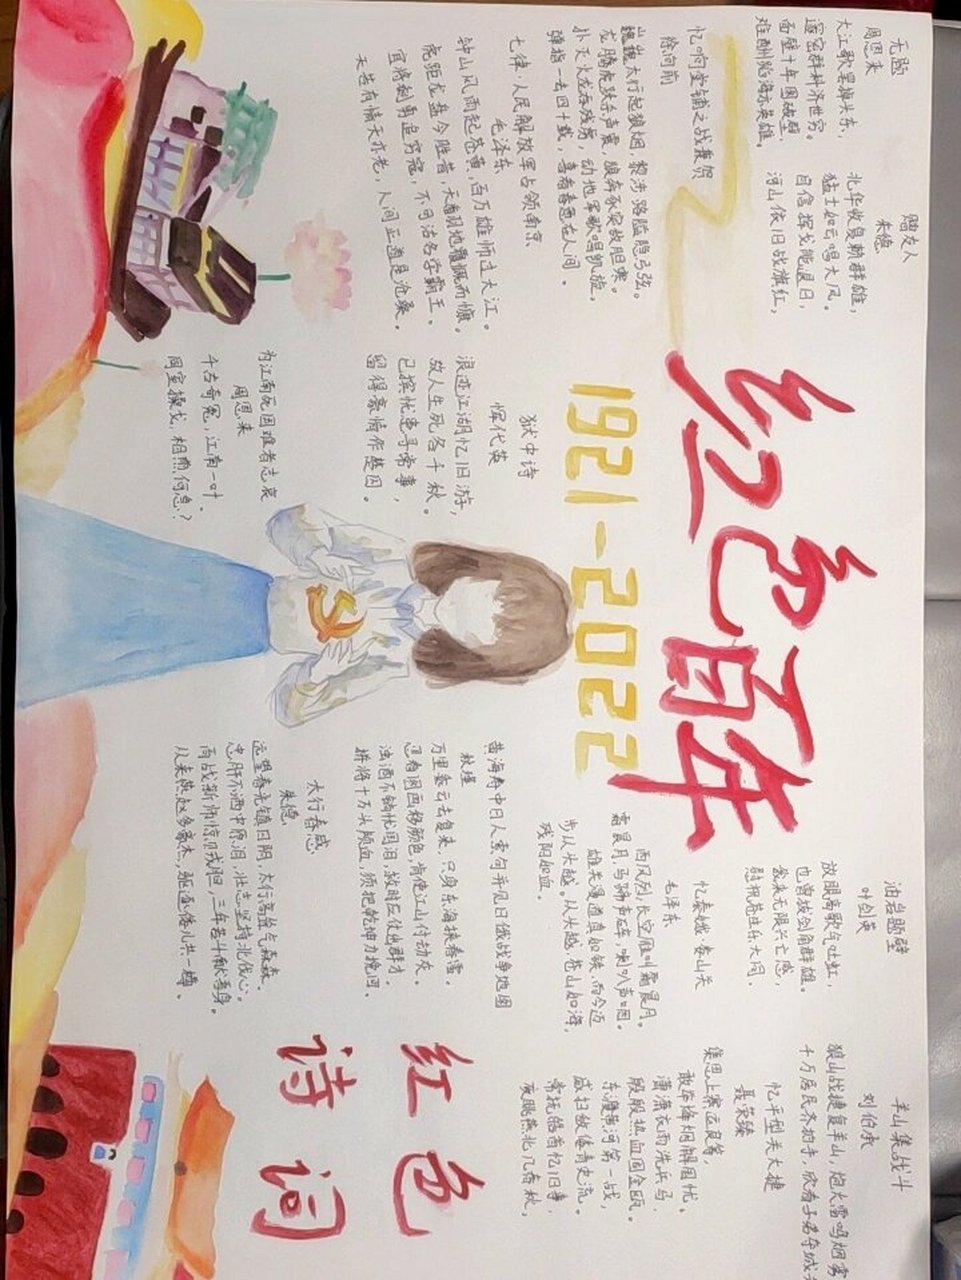 红色百年
1921-2022
无题
周恩来
大江歌罢掉头东，
邃密群科济世穷。
面壁十年图破壁，
难酬蹈海亦英雄。
赠友人
朱德
北华收复赖群雄，
猛士如云唱大风。
自信挥戈能退日，
河山依旧战旗红，
忆响堂铺之战兼贺
徐向前
巍巍太行起狼烟，黎涉路隘隐弓弦。
龙腾虎跃杀声震，狼奔豕突敌胆寒。
扑灭火龙吞残虏，动地军歌唱凯旋。
弹指一去四十载，喜看春意在人间。
七律·人民解放军占领南京
毛泽东
钟山风雨起苍黄，百万雄师过大江。
虎踞龙盘今胜昔，天翻地覆慨而慷。
宜将剩勇追穷寇，不可沽名学霸王。
天若有情天亦老，人间正道是沧桑。
狱中诗
恽代英
浪迹江湖忆旧游，
故人生死各千秋。
已摈忧患寻常事，
留得豪情作楚囚。
为江南死国难者志哀
周恩来
千古奇冤，江南一叶。
同室操戈，相煎何急？
油岩题壁
叶剑英
放眼高歌气吐虹，
也曾拔剑角群雄。
我来无限兴亡感，
慰祝苍生乐大同。
羊山集战斗
刘伯承
狼山战捷复羊山，炮火雷鸣烟雾
千万居民齐拍手，欣看子弟夺城
忆秦娥·娄山关
毛泽东
西风烈，长空雁叫霜晨月。
霜晨月，马蹄声碎，喇叭声咽。
雄关漫道真如铁，而今迈
步从头越。从头越，苍山如海，
残阳如血。
忆平型关大捷
聂荣臻
集师上寨运良筹，
敢举烽烟解国忧。
潇潇夜雨洗兵马，
殷殷热血固金瓯。
东渡黄河第一战，
威扫敌倭青史流。
常抚皓首忆旧事，
夜眺燕北几春秋，
黄海舟中日人索句并见日俄战争地图
秋瑾
万里乘云去复来，只身东海挟春雷。
忍看图画移颜色，肯使江山付劫灰。
浊酒不销忧国泪，救时应仗出群才。
拼将十万头颅血，须把乾坤力挽回。
太行春感
朱德
远望春光镇日阴，太行高耸气森森。
忠肝不洒中原泪，壮志坚持北伐心。
百战新师惊贼胆，三年苦斗献吾身。
从来燕赵多豪杰，驱逐倭儿共一樽。
红色
诗词